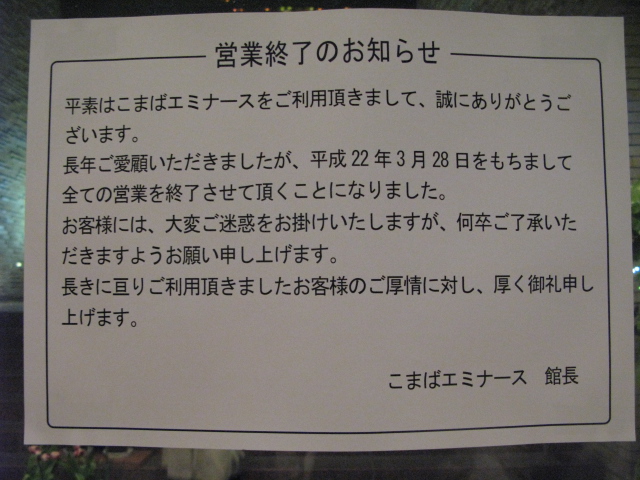 営業終了のお知らせ
平素はこまばエミナースをご利用頂きまして、誠にありがとうご
ざいます。
長年ご愛顧いただきましたが、平成22年3月28日をもちまして
全ての営業を終了させて頂くことになりました。
お客様には、大変ご迷惑をお掛けいたしますが、何卒ご了承いた
だきますようお願い申し上げます。
長きに亘りご利用頂きましたお客様のご厚情に対し、厚く御礼申し
上げます。
こまばエミナース　館長